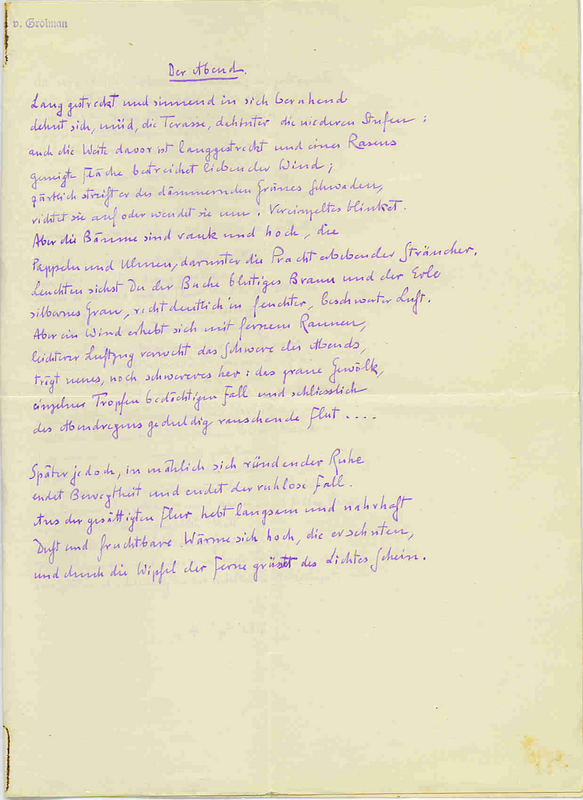 v. Grolman
Der Abend.
Lang gestreckt und sinnend in sich beruhend
dehnt sich, müd, die Terasse, dahinter die niederen Stufen :
auch die Weite davor ist langgestreckt und eines Rasens
geneigte Fläche bestreichet liebender Wind ;
zärtlich streift er des dämmernden Grünes Schwaden,
richtet sie auf oder wendet sie um. Vereinzeltes blinket.
Aber die Bäume sind rank und hoch, die
Pappeln und Ulmen, darunter die Pracht erbebender Sträucher.
leuchten siehst Du der Buche blutiges Braun und der Erle
silbernes Grau, recht deutlich in feuchter, beschwerter Luft.
Aber ein Wind erhebt sich mit fernem Raunen,
leichterer Luftzug verweht das Schwere des Abends,
trägt neues, noch schwereres her : das graue Gewölk,
einzelner Tropfen bedächtigen Fall und schliesslich
des Abendregens geduldig rauschende Flut ....
Später jedoch, in mählich sich ründender Ruhe
endet Bewegtheit und endet der ruhlose Fall.
Aus der gesättigten Flur hebt langsam und nahrhaft
Duft und fruchtbare Wärme sich hoch, die ersehnten,
und durch die Wipfel der Ferne grüsst des Lichtes Schein.